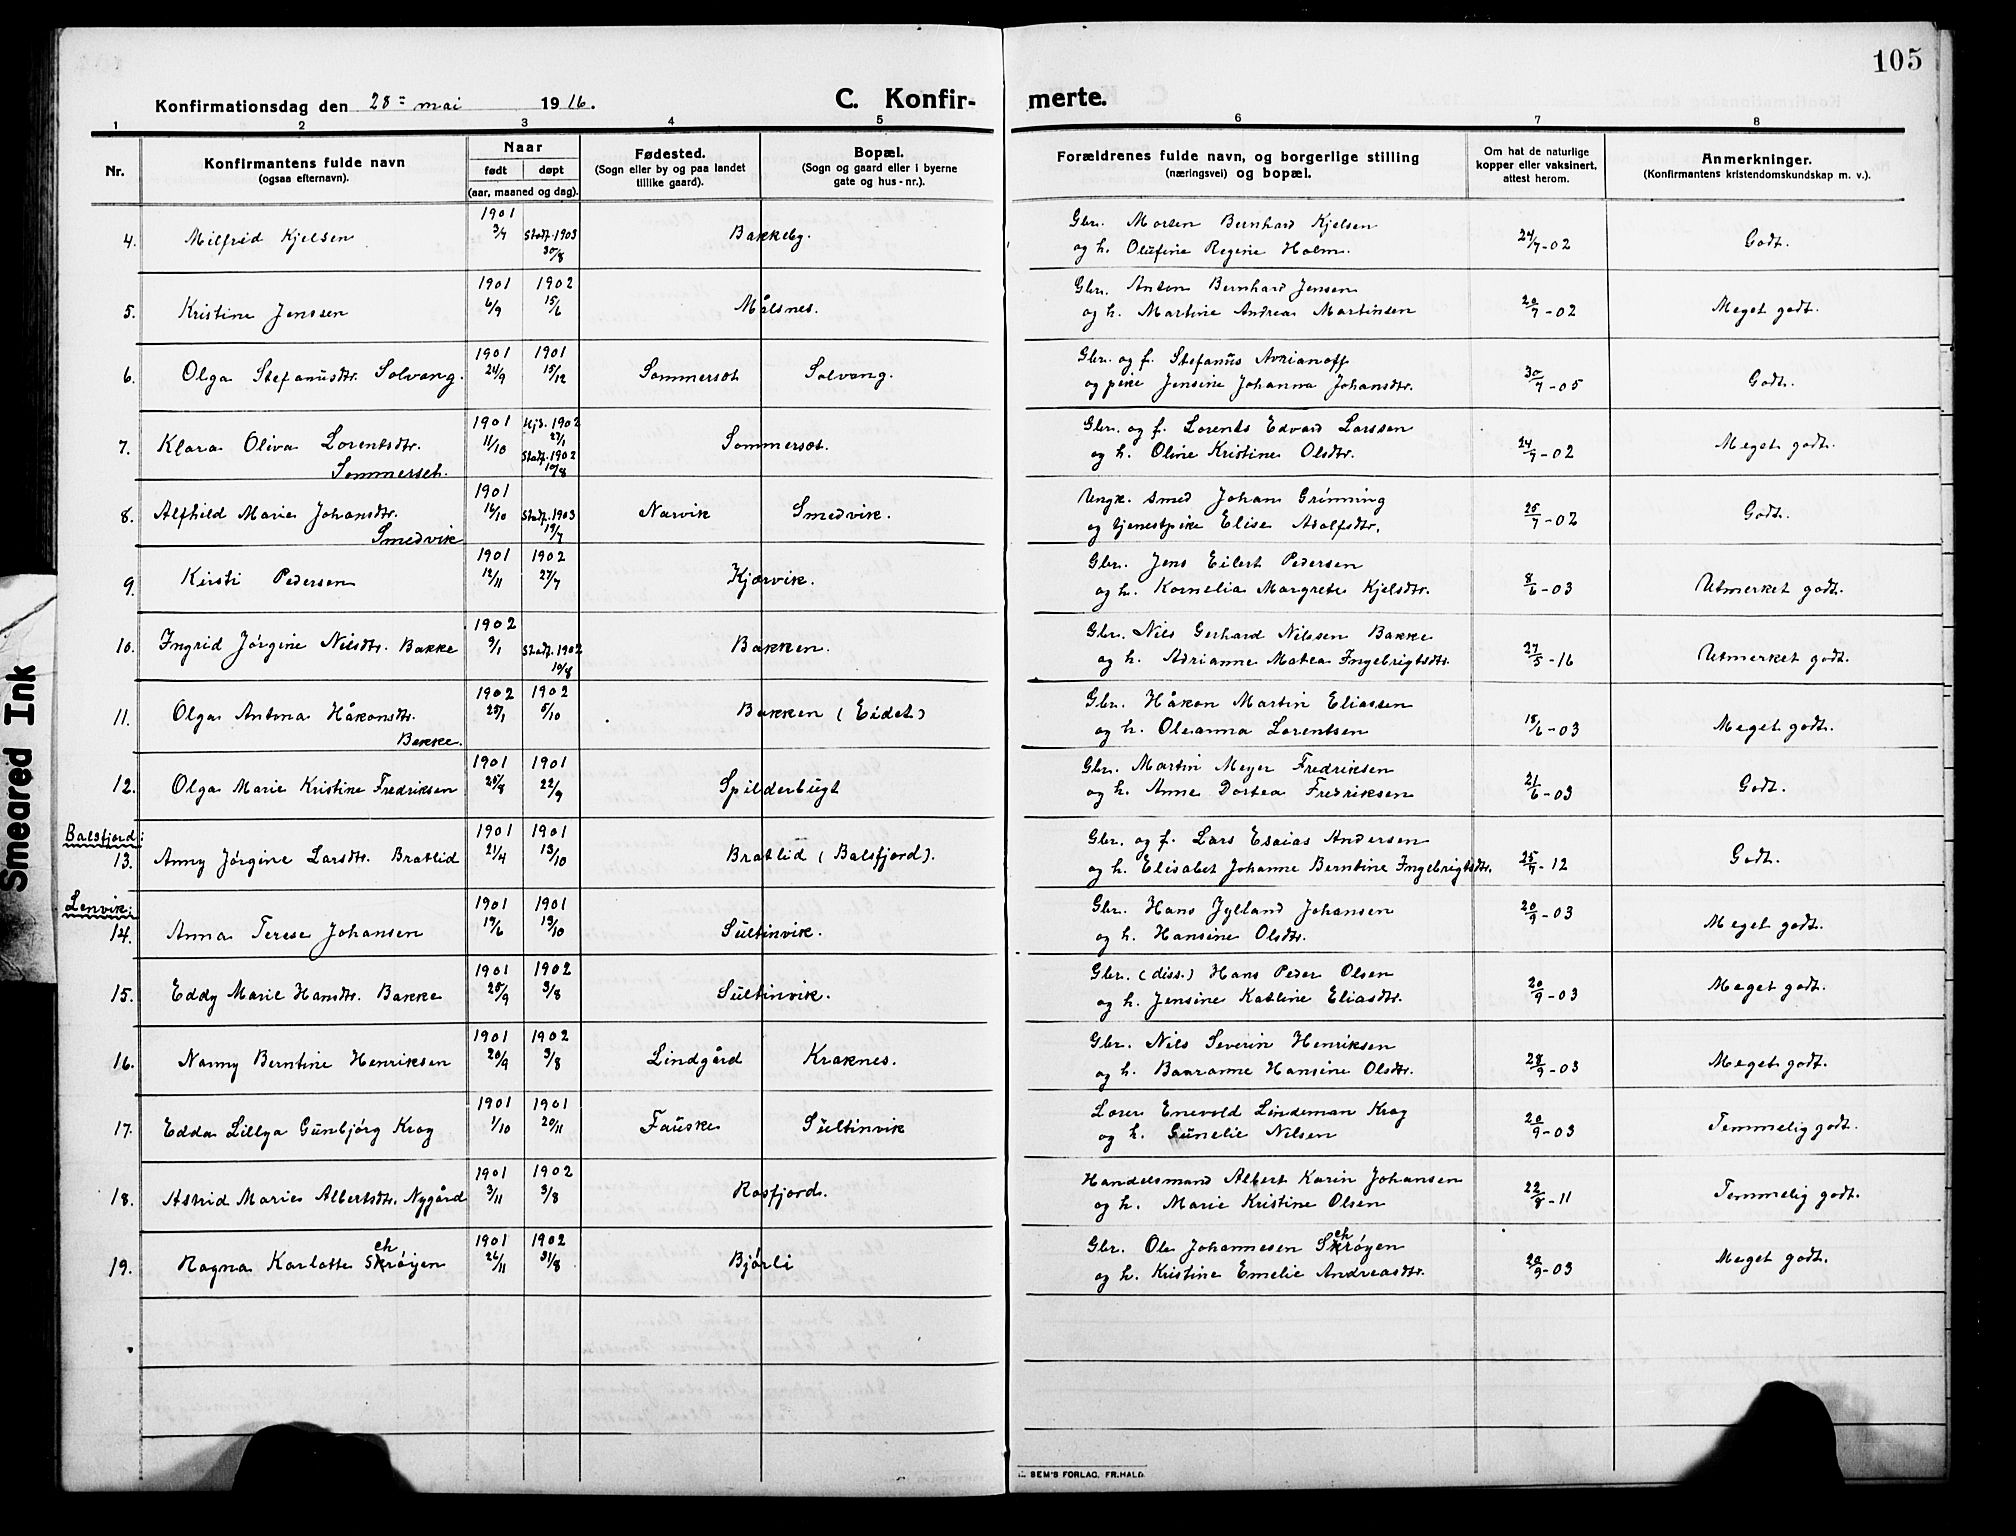 105
Konfirmationsdag den 28= mai 1916. C. Konfir- merte.
1 2 3 4 5 6 7 8
Nr. Konfirmantens fulde navn (ogsaa efternavn). Naar født døpt (aar, maaned og dag). Fødested. (Sogn eller by og paa landet tillike gaard). Bopæl. (Sogn og gaard eller i byerne gate og hus-nr.). Forældrenes fulde navn, og borgerlige stilling (næringsvei) og bopæl. Om hat de naturlige kopper eller vaksinert, attest herom. Anmerkninger. (Konfirmantens kristendomskundskap m. v.).
4. Milfrid Kjelsen 1901 3/7 Stadf. 1903 30/8 Bakkeby. Gbr. Morten Bernhard Kjelsen 24/7-02 Godt.
og h. Olufine Regine Holm.
5. Kristine Jenssen 1901 6/9 1902 15/6 Målsnes. Gbr. Anton Bernhard Jensen 20/7-02 Meget godt.
og h. Martine Andrea Martinsen
6. Olga Stefanusdtr. Solvang. 1901 24/9 1901 15/12 Sommerset Solvang. Gbr. og f. Stefanus Avrianoff 30/7-05 Godt.
og pike Jensine Johanna Johansdtr.
7. Klara Oliva Lorentsdtr. 1901 11/10 Hjd. 1902 27/1 Sommerset. Gbr. og f. Lorents Edvard Larssen 24/7-02 Meget godt.
Sommerset. Stadf. 1902 10/8 og h. Oline Kristine Olsdtr.
8. Alfhild Marie Johansdtr. 1901 16/10 Stadf. 1903 19/7 Narvik Smedvik. Ungk. smed Johan Grønning 25/7-02 Godt.
Smedvik og tjenestpike Elise Adolfsdtr.
9. Kirsti Pedersen 1901 12/11 1902 27/7 Kjærvik. Gbr. Jens Eilert Pedersen 8/6-03 Utmerket godt.
og h. Kornelia Margrete Kjelsdtr.
10. Ingrid Jørgine Nilsdtr. Bakke 1902 9/1 Stadf. 1902 10/8 Bakken. Gbr. Nils Gerhard Nilssen Bakke 27/5-16 Utmerket godt.
og h. Adrianne Matea Ingebrigtsdtr.
11. Olga Antona Håkonsdtr. 1902 25/1 1902 5/10 Bakken (Eidet) Gbr. Håkon Martin Eliassen 18/6-03 Meget godt.
Bakke. og h. Oleanna Lorentsen
12. Olga Marie Kristine Fredriksen 1901 25/8 1901 22/9 Spilderbugt Gbr. Martin Meyer Fredriksen 21/6-03 Godt.
og h. Anne Dortea Fredriksen
Balsfjord:
13. Anny Jørgine Larsdtr. Bratlid 1901 21/4 1901 13/10 Bratlid (Balsfjord). Gbr. og f. Lars Esaias Andersen 25/7-12 Godt.
og h. Elisabet Johanne Berntine Ingebrigtsdtr.
Lenvik:
14. Anna Terese Johansen 1901 19/6 1901 13/10 Sultinvik. Gbr. Hans Jylland Johansen 20/9-03 Meget godt.
og h. Hansine Olsdtr.
15. Eddy Marie Hansdtr. Bakke 1901 25/9 1902 3/8 Sultinvik. Gbr. (diss.) Hans Peder Olsen 20/9-03 Meget godt.
og h. Jensine Katline Eliasdtr.
16. Nanny Berntine Henriksen 1901 20/9 1902 3/8 Lindgård Kraknes. Gbr. Nils Severin Henriksen 28/9-03 Meget godt.
og h. Baaranne Hansine Olsdtr.
17. Edda Lillya Gunbjørg Krog 1901 1/10 1901 20/11 Fauske Sultinvik Lærer Enevold Lindeman Krog 20/9-03 Temmelig godt.
og h. Gunelie Nilsen
18. Astrid Marie Albertsdtr. Nygård 1901 3/11 1902 3/8 Rosfjord. Handelsmand Albert Karin Johansen 22/8-11 Temmelig godt.
og h. Marie Kristine Olsen
19. Ragna Karlotte Skrøyen ch 1901 26/11 1902 31/8 Bjørli Gbr. Ole Johannesen Skrøyen ch 20/9-03 Meget godt.
og h. Kristine Emelie Andreasdtr.
SEM'S FORLAG, FR.HALD.
Smeared Ink